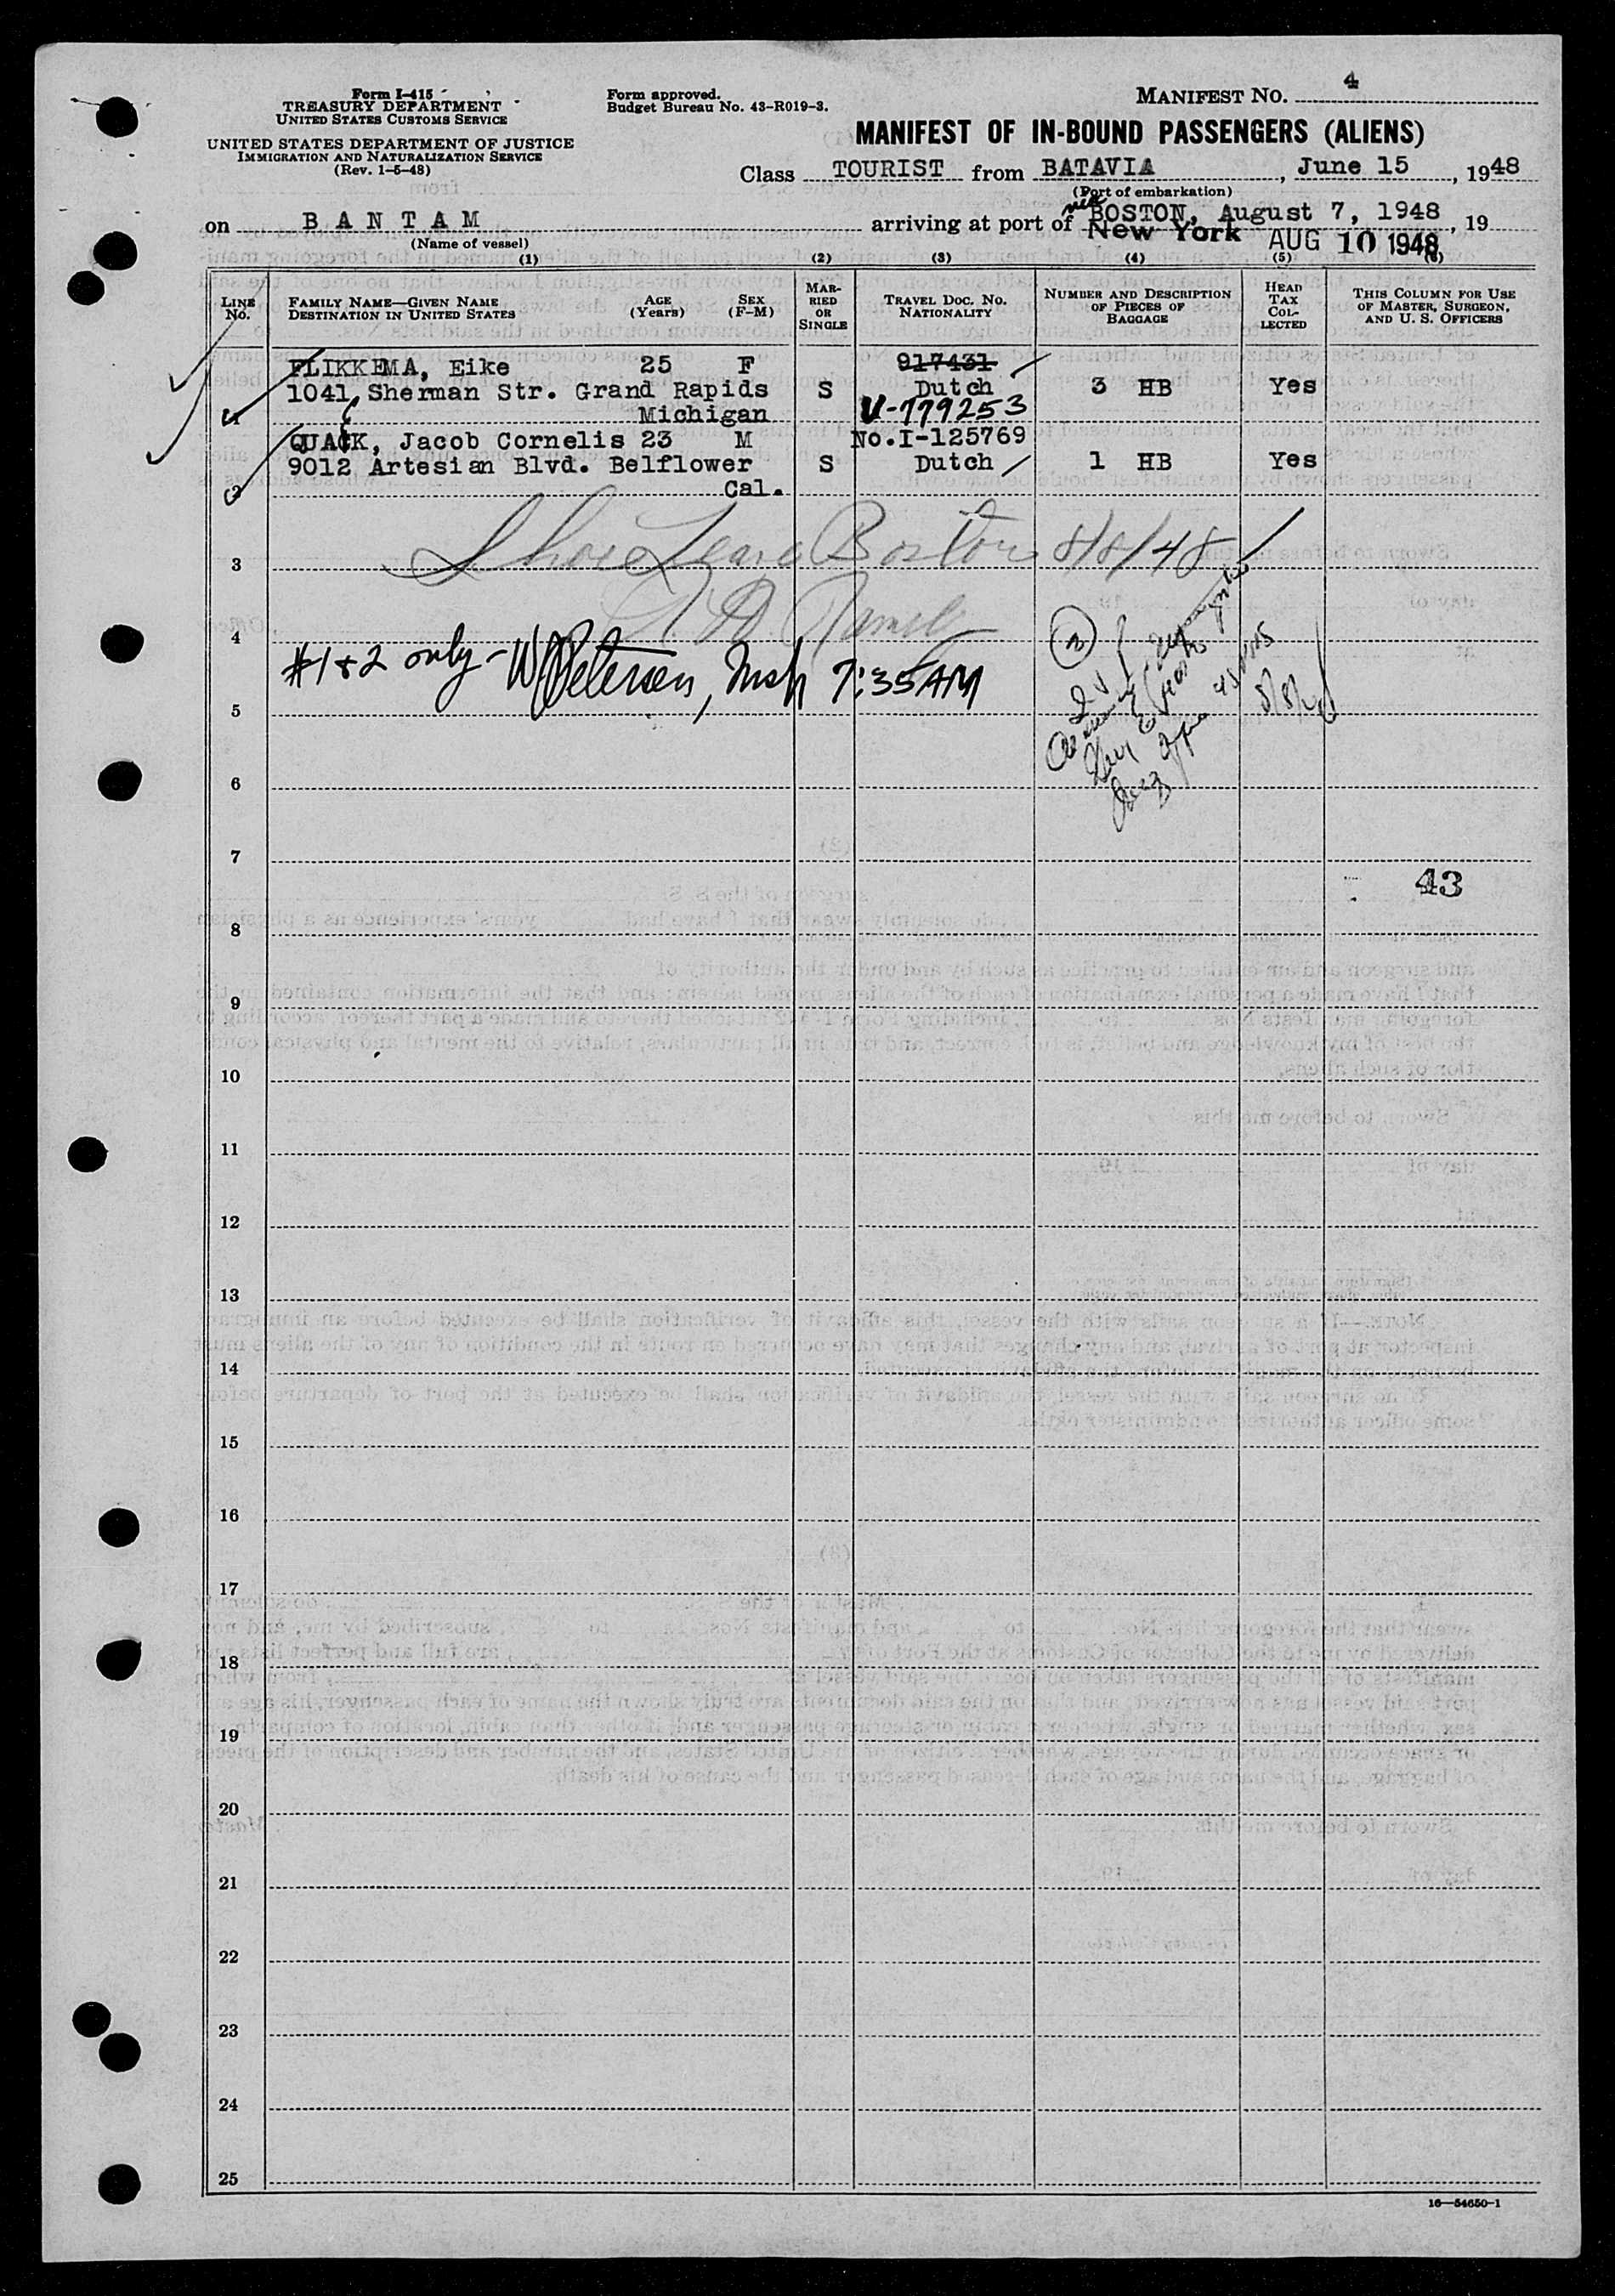 Form I-415
TREASURY DEPARTMENT
UNITED STATES CUSTOMS SERVICE
UNITED STATES DEPARTMENT OF JUSTICE
IMMIGRATION AND NATURALIZATION SERVICE
(Rev. 1-5-48)
Form approved.
Budget Bureau No. 43-R019-3.
MANIFEST NO. 4
MANIFEST OF IN-BOUND PASSENGERS (ALIENS)
Class TOURIST from BATAVIA, June 15, 1948
(Port of embarkation)
on BANTAM arriving at port of BOSTON, August 7, 1948, 19
(Name of vessel)
New York AUG 10 1948
(1) (2) (3) (4) (5) (6)
LINE No.
FAMILY NAME—GIVEN NAME
DESTINATION IN UNITED STATES
AGE (Years)
SEX (F-M)
MARRIED OR SINGLE
TRAVEL DOC. NO.
NATIONALITY
NUMBER AND DESCRIPTION OF PIECES OF BAGGAGE
HEAD TAX COLLECTED
THIS COLUMN FOR USE OF MASTER, SURGEON, AND U. S. OFFICERS
FLIKKEMA, Eike 25 F 917431
1041 Sherman Str. Grand Rapids S Dutch 3 HB Yes
1 Michigan V-779253
QUACK, Jacob Cornelis 23 M No.I-125769
9012 Artesian Blvd. Belflower S Dutch 1 HB Yes
2 Cal.
3 Shore Leave Boston 8/8/48
4
#1 & 2 only - W Petersen, Insp 7:35 AM
5
6
7
43
8
9
10
11
12
13
14
15
16
17
18
19
20
21
22
23
24
25
16—54650-1